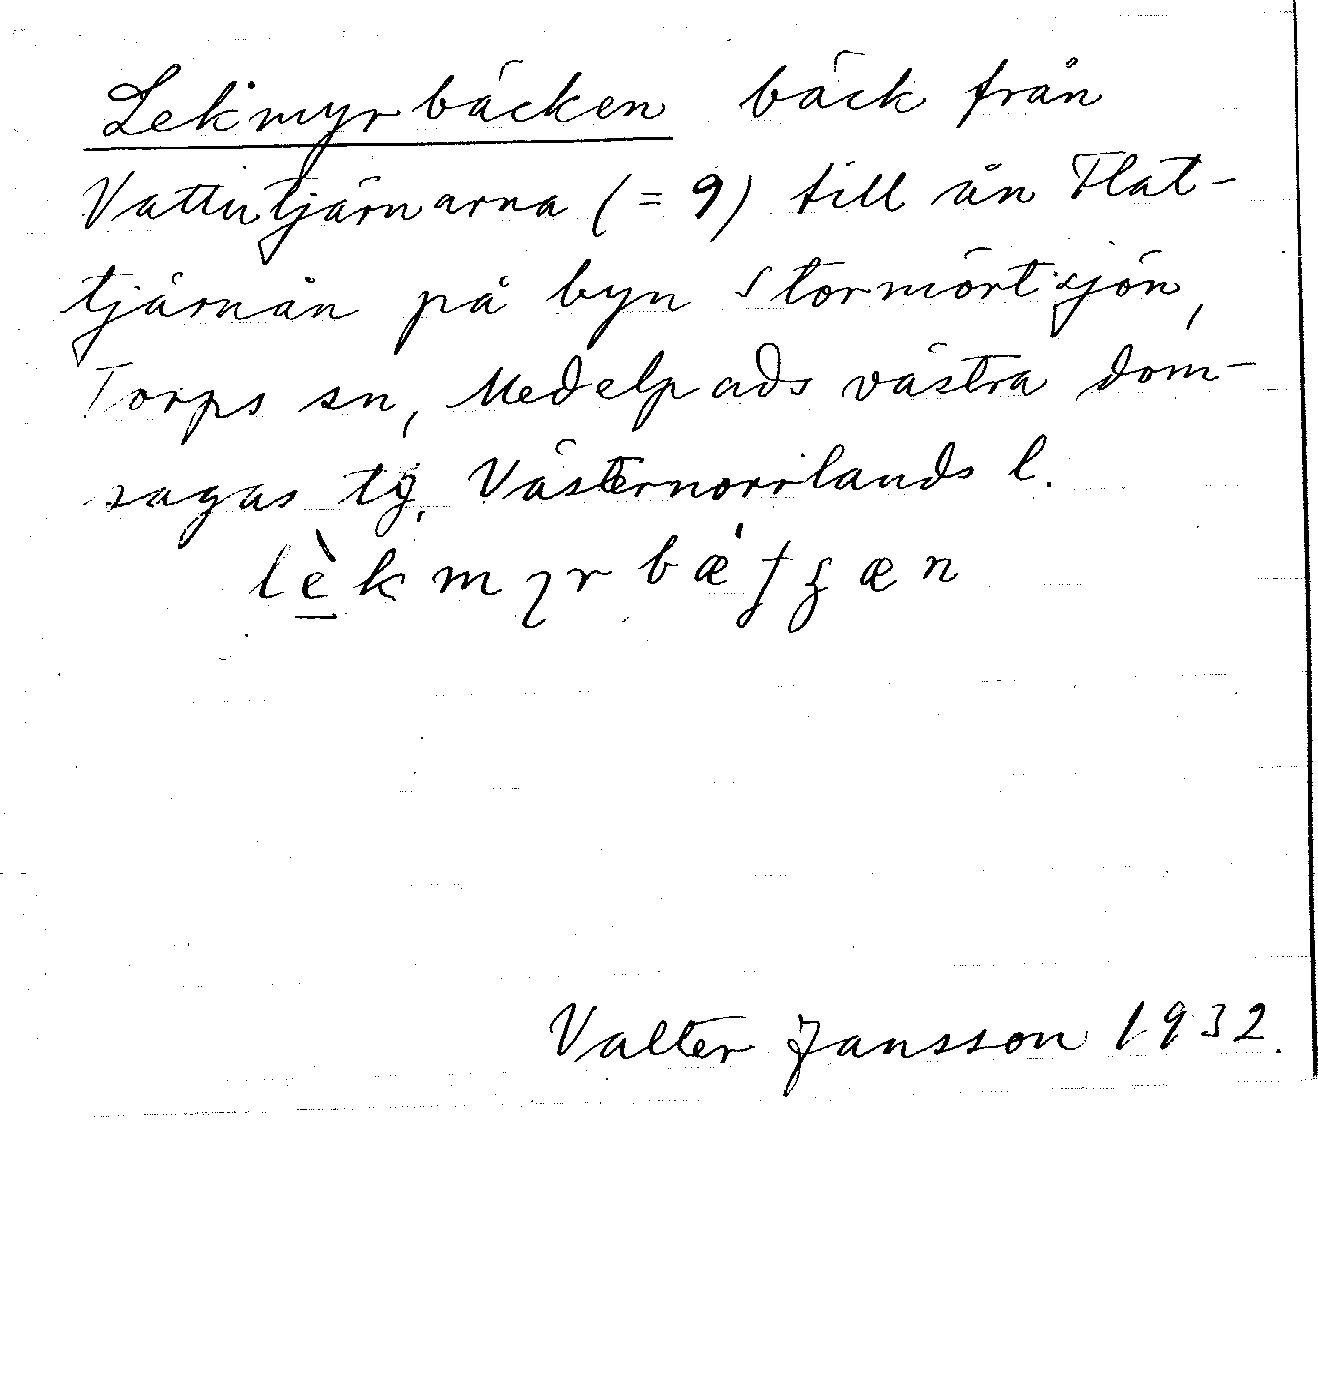 Lekmyrbäcken bäck från
Vattutjärnarna (= 9) till ån Flat-
tjärnån på byn Stormörtsjön,
Torps sn, Medelpads västra dom-
sagas tg, Västernorrlands l.
Valter Jansson 1932.